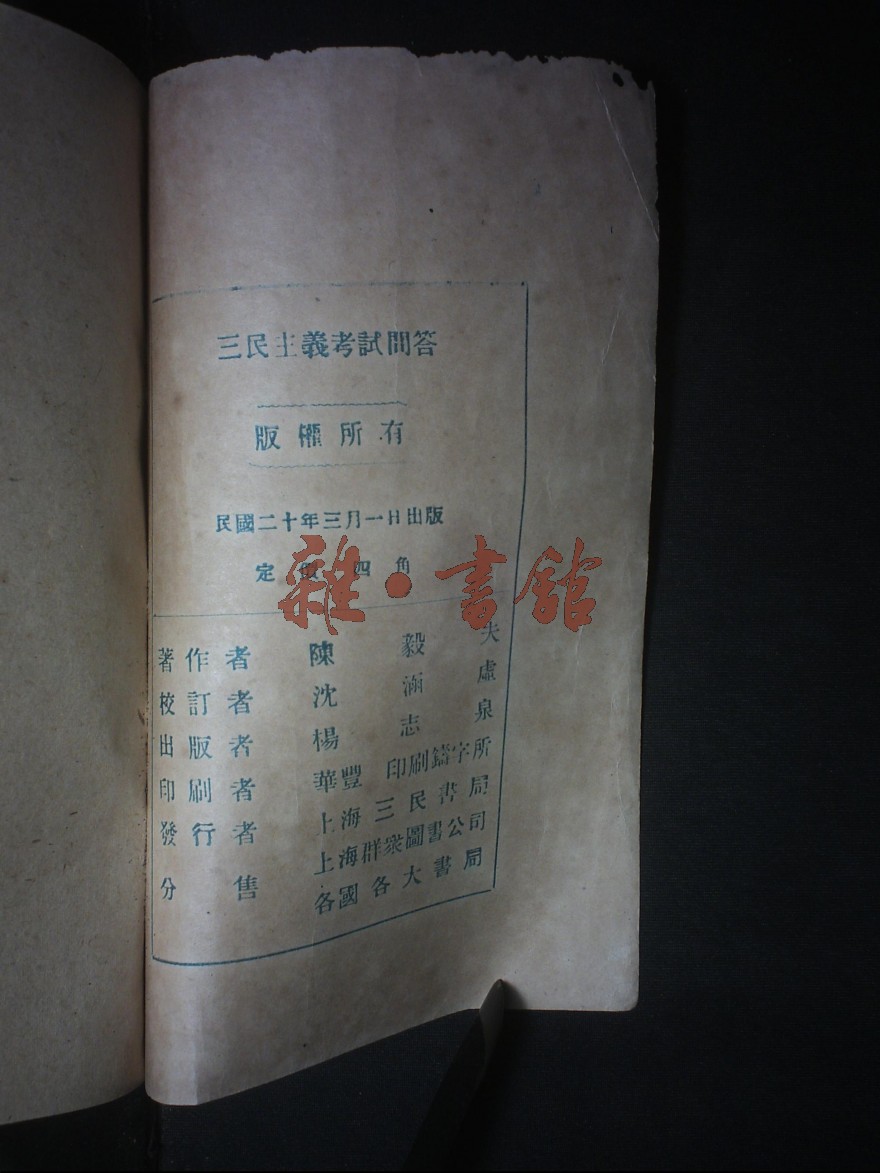 三民主義考試問答
版權所有
民國二十年三月一日出版
定價四角
雜·書館
著作者 陳毅夫
校訂者 沈涵虛
出版者 楊志泉
印刷者 華豐印刷鑄字所
發行者 上海三民書局
上海群衆圖書公司
分售 各國各大書局